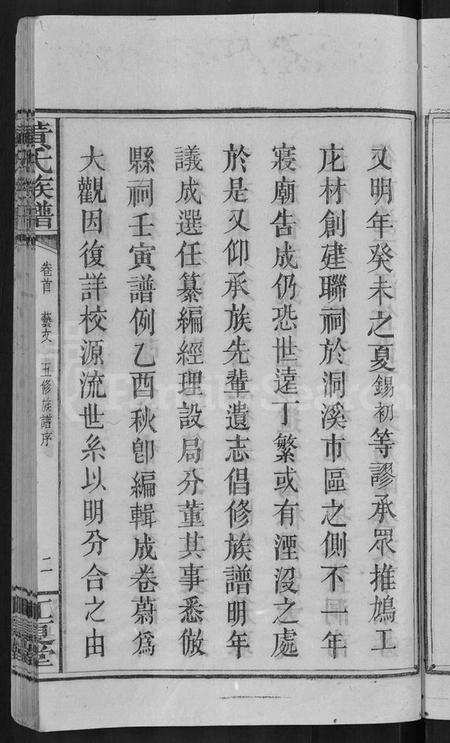 又明年癸未之夏錫初等謬承眾推鳩工
庀材創建聯祠於洞溪市區之側不一年
寢廟告成仍恐世遠丁繁或有湮沒之處
於是又仰承族先輩遺志倡修族譜明年
議成選任纂編經理設局分董其事悉倣
縣祠壬寅譜例乙酉秋卽編輯成卷蔚為
大觀因復詳校源流世系以明分合之由
黃氏族譜
卷首 藝文 五修族譜序
二
江夏堂
FamilySearch